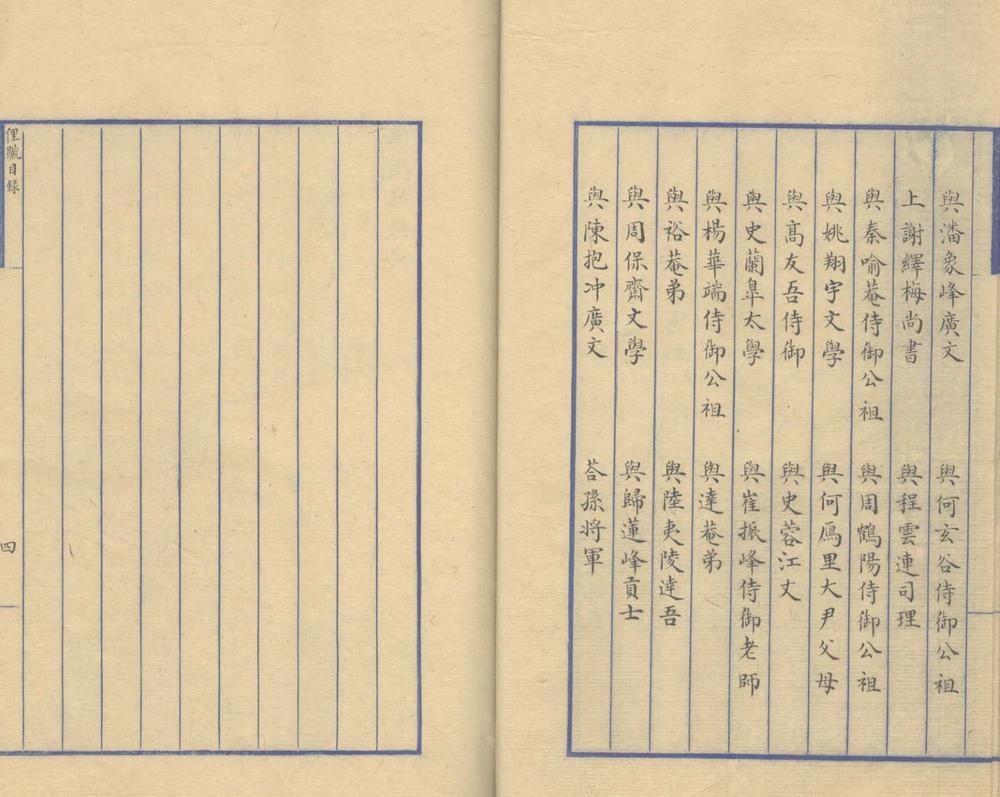 與潘象峰廣文
與何玄谷侍御公祖
上謝繹梅尚書
與程雲連司理
與秦喻菴侍御公祖
與周鶴陽侍御公祖
與姚翔宇文學
與何鴈里大尹父母
與高友吾侍御
與史蓉江丈
與史蘭臯太學
與崔振峰侍御老師
與楊華端侍御公祖
與達菴弟
與裕菴弟
與陸夷陵達吾
與周保齋文學
與歸蓮峰貢士
與陳抱冲廣文
荅孫將軍
目錄
四